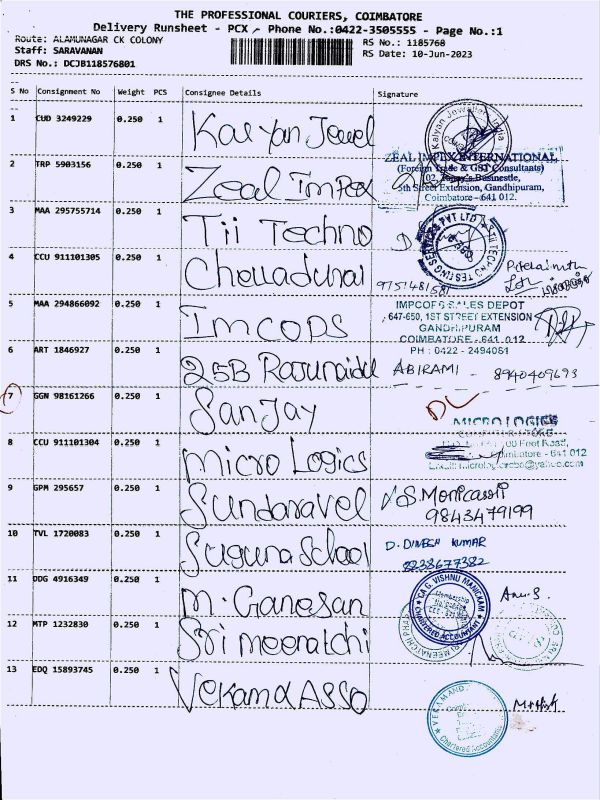 THE PROFESSIONAL COURIERS, COIMBATORE
Delivery Runsheet - PCX - Phone No.:0422-3505555 - Page No.:1
Route: ALAMUNAGAR CK COLONY
RS No.: 1185768
Staff: SARAVANAN
RS Date: 10-Jun-2023
DRS No.: DCJB118576801
S No Consignment No Weight PCS Consignee Details Signature
1 CUD 3249229 0.250 1 Kalyan Jewel
Kalyan Jewellers India
2 TRP 5903156 0.250 1 Zeal Impex
ZEAL IMPEX INTERNATIONAL
(Foreign Trade & GST Consultants)
5th Street Extension, Gandhipuram,
Coimbatore - 641 012.
3 MAA 295755714 0.250 1 Tii Techno
TII TECHNO TESTING SERVICES PVT LTD
4 CCU 911101305 0.250 1 Chelladurai
9751481581
5 MAA 294866092 0.250 1 IMCOPS
IMPCOPS SALES DEPOT
647-650, 1ST STREET EXTENSION
GANDHIPURAM
COIMBATORE - 641 012
PH : 0422 - 2494061
6 ART 1846927 0.250 1 25B Rajunaidu ABIRAMI - 8940409693
7 GGN 98161266 0.250 1 Sanjay DL
8 CCU 911101304 0.250 1 Micro Logics
MICRO LOGICS
100 Foot Road,
Coimbatore - 641 012
9 GPM 295657 0.250 1 Sundaravel
9843479199
10 TVL 1720083 0.250 1 Suguna School D. DINESH KUMAR
8238677382
11 DDG 4916349 0.250 1 M. Ganesan
CA G. VISHNU MANICKAM
CHARTERED ACCOUNTANT
12 MTP 1232830 0.250 1 Sri meenatchi
SRI MEENATCHI
13 EDQ 15893745 0.250 1 Vekam & Asso
Chartered Accountants